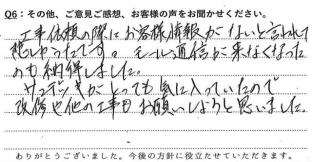 Q6：その他、ご意見ご感想、お客様の声をお聞かせください。
工事依頼の際にお客様情報がないと言われて
悲しかったです。メール通信が来なくなった
のも納得しました。
サンデッキがとっても気に入っていたので
改修や他の工事もお願いしようと思いました。
ありがとうございました。今後の方針に役立たせていただきます。